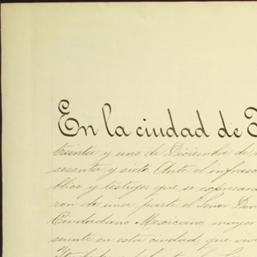 En la ciudad de
treinta y uno de Diciembre de
sesenta y siete. Ante el infras
blico y testigos que se espresaran
ron de una parte el Señor Don
Ciudadano Mexicano, mayor
sente en esta ciudad, que vive